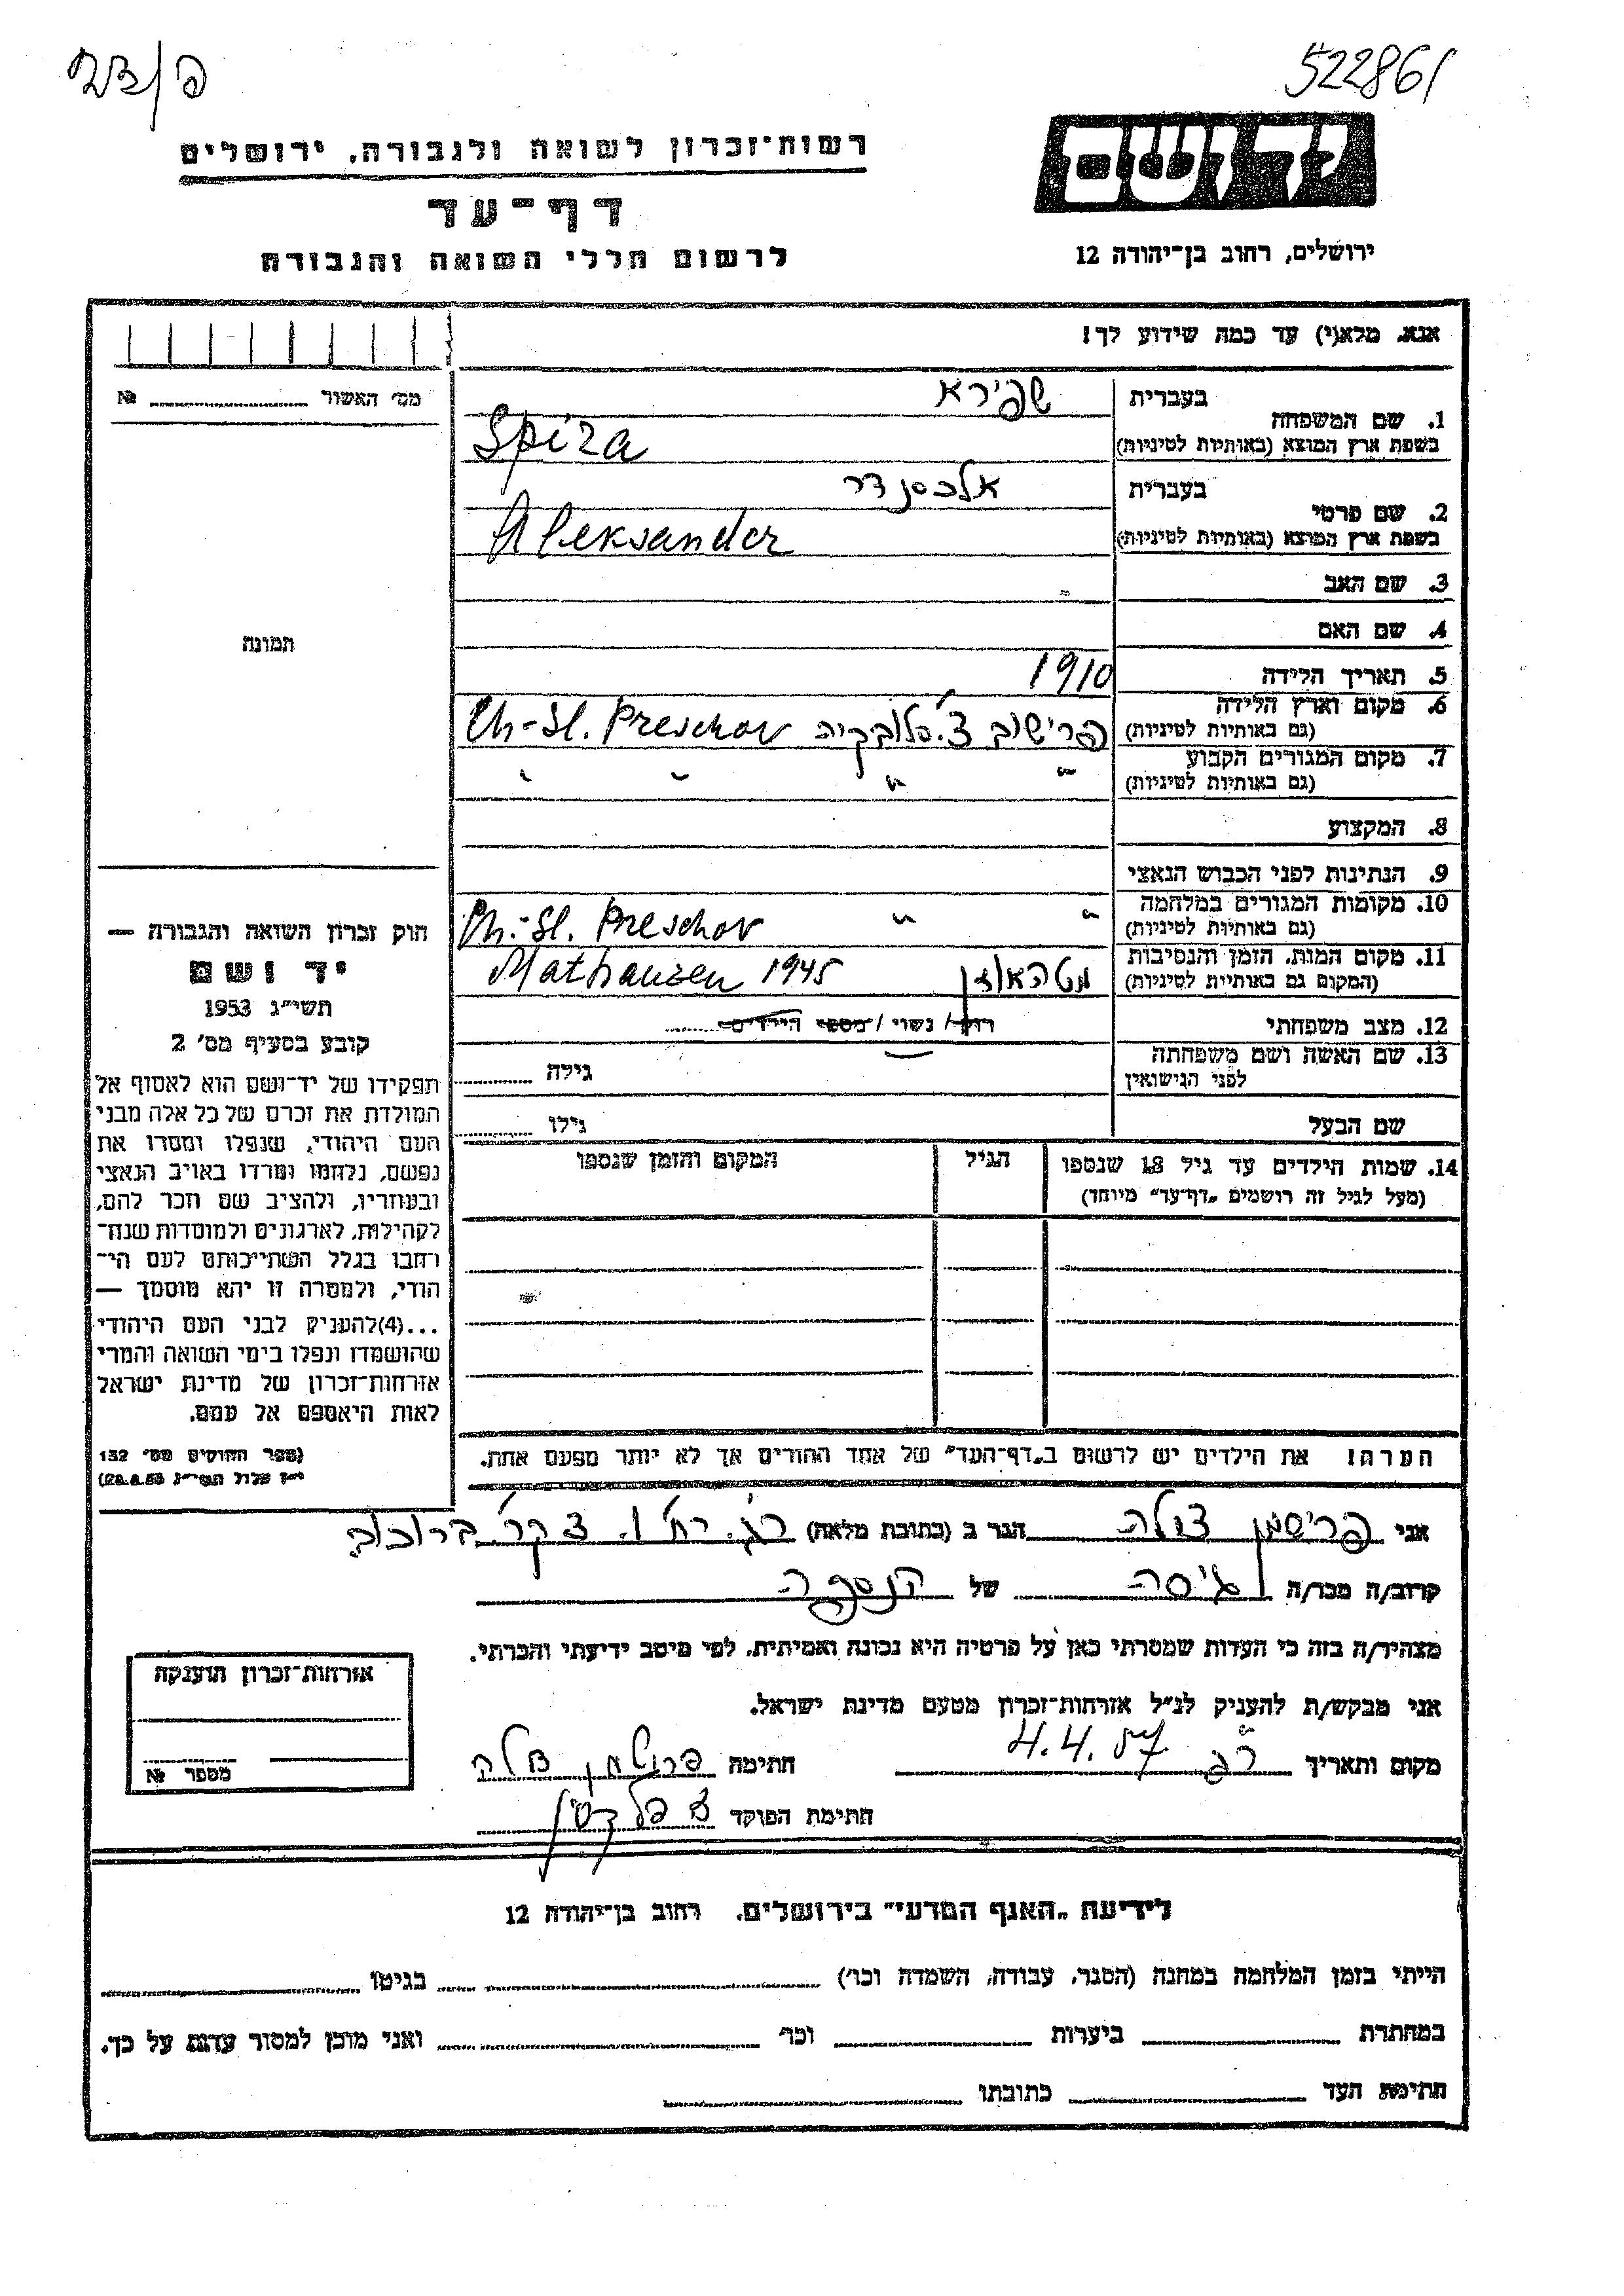 522861
רשות־זכרון לשואה ולגבורה, ירושלים
דף־עד
לרשום חללי השואה והגבורה
ידושם
ירושלים, רחוב בן־יהודה 12
אנא, מלא(י) עד כמה שידוע לך!
מס׳ האשור № 
תמונה
בעברית שפירא
1. שם המשפחה
בשפת ארץ המוצא (באותיות לטיניות) Spira
בעברית אלכסנדר
2. שם פרטי
בשפת ארץ המוצא (באותיות לטיניות) Aleksander
3. שם האב
4. שם האם
5. תאריך הלידה 1910
6. מקום וארץ הלידה פרישוב צ׳.סלובקיה Ch-Sl. Preschov
(גם באותיות לטיניות)
7. מקום המגורים הקבוע " " " "
(גם באותיות לטיניות)
8. המקצוע
9. הנתינות לפני הכבוש הנאצי
10. מקומות המגורים במלחמה " " Ch.-Sl. Preschov
(גם באותיות לטיניות)
11. מקום המות, הזמן והנסיבות מטהאוזן Mathausen 1945
(המקום גם באותיות לטיניות)
12. מצב משפחתי רוק / נשוי / מספר הילדים
13. שם האשה ושם משפחתה גילה
לפני הנישואין
שם הבעל גילו
14. שמות הילדים עד גיל 18 שנספו הגיל המקום והזמן שנספו
(מעל לגיל זה רושמים „דף־עד״ מיוחד)
הערה! את הילדים יש לרשום ב„דף־העד״ של אחד ההורים אך לא יותר מפעם אחת.
חוק זכרון השואה והגבורה —
יד ושם
תשי״ג 1953
קובע בסעיף מס׳ 2
תפקידו של יד־ושם הוא לאסוף אל
המולדת את זכרם של כל אלה מבני
העם היהודי, שנפלו ומסרו את
נפשם, נלחמו ומרדו באויב הנאצי
ובעוזריו, ולהציב שם וזכר להם,
לקהילות, לארגונים ולמוסדות שנח־
רבו בגלל השתייכותם לעם הי־
הודי, ולמטרה זו יהא מוסמך —
...(4)להעניק לבני העם היהודי
שהושמדו ונפלו בימי השואה והמרי
אזרחות־זכרון של מדינת ישראל
לאות היאספם אל עמם.
(ספר החוקים מס׳ 132
י״ז אלול תשי״ג 28.8.53)
אני פרישמן צולה הגר ב (כתובת מלאה) רג. רח׳
קרוב/ה מכר/ה גיסה של הנספה
מצהיר/ה בזה כי העדות שמסרתי כאן על פרטיה היא נכונה ואמיתית, לפי מיטב ידיעתי והכרתי.
אני מבקש/ת להעניק לנ״ל אזרחות־זכרון מטעם מדינת ישראל.
מקום ותאריך רג 4.4.57 חתימה
חתימת הפוקד
אזרחות־זכרון הוענקה
מספר №
לידיעת „האגף המדעי״ בירושלים, רחוב בן־יהודה 12
הייתי בזמן המלחמה במחנה (הסגר, עבודה, השמדה וכו׳) בגיטו
במחתרת ביערות וכו׳ ואני מוכן למסור עדות על כך.
חתימת העד כתובתו